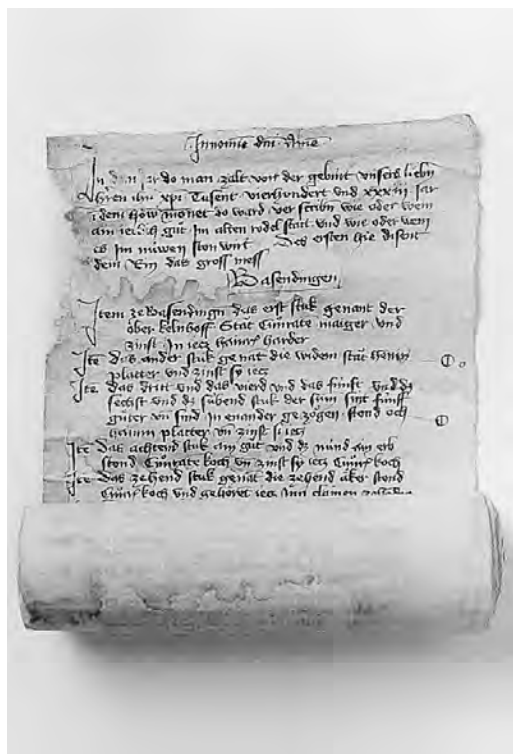 In nomine dni Ame
In dem jar do man zalt von der geburt unsers liebn
hren ihu xpi Tusent vierhundert und xxxiii jar
i dem höw monet do ward verscribn wie oder wem
ain ieclich gut im alten rodel statt und wie oder wem
es im nüwen ston wirt Des ersten hie disent
dem Rin das gross mess
Basendingen
Item ze Basendingn das erst stuk genant der
ober kelnhoff Stat Cunrate maiger und
zinst In iecz hainr harder
Ite das ander stuk genat die widem stat hainin
platter und zinst sy iecz
Ite das dritt und das vierd und das fünft und dz
sechst und dz subend stuk der sym sint fünff
güter un sind in enander gezogen stond och
hainin platter un zinst si iecz
Ite das achtend stuk ain gut und dz nünd ain erb
stond Cunrate koch un zinst sy iecz Cunr koch
Ite das zehend stuk genat die zehend aker stond
Cunr koch und gehöret iecz